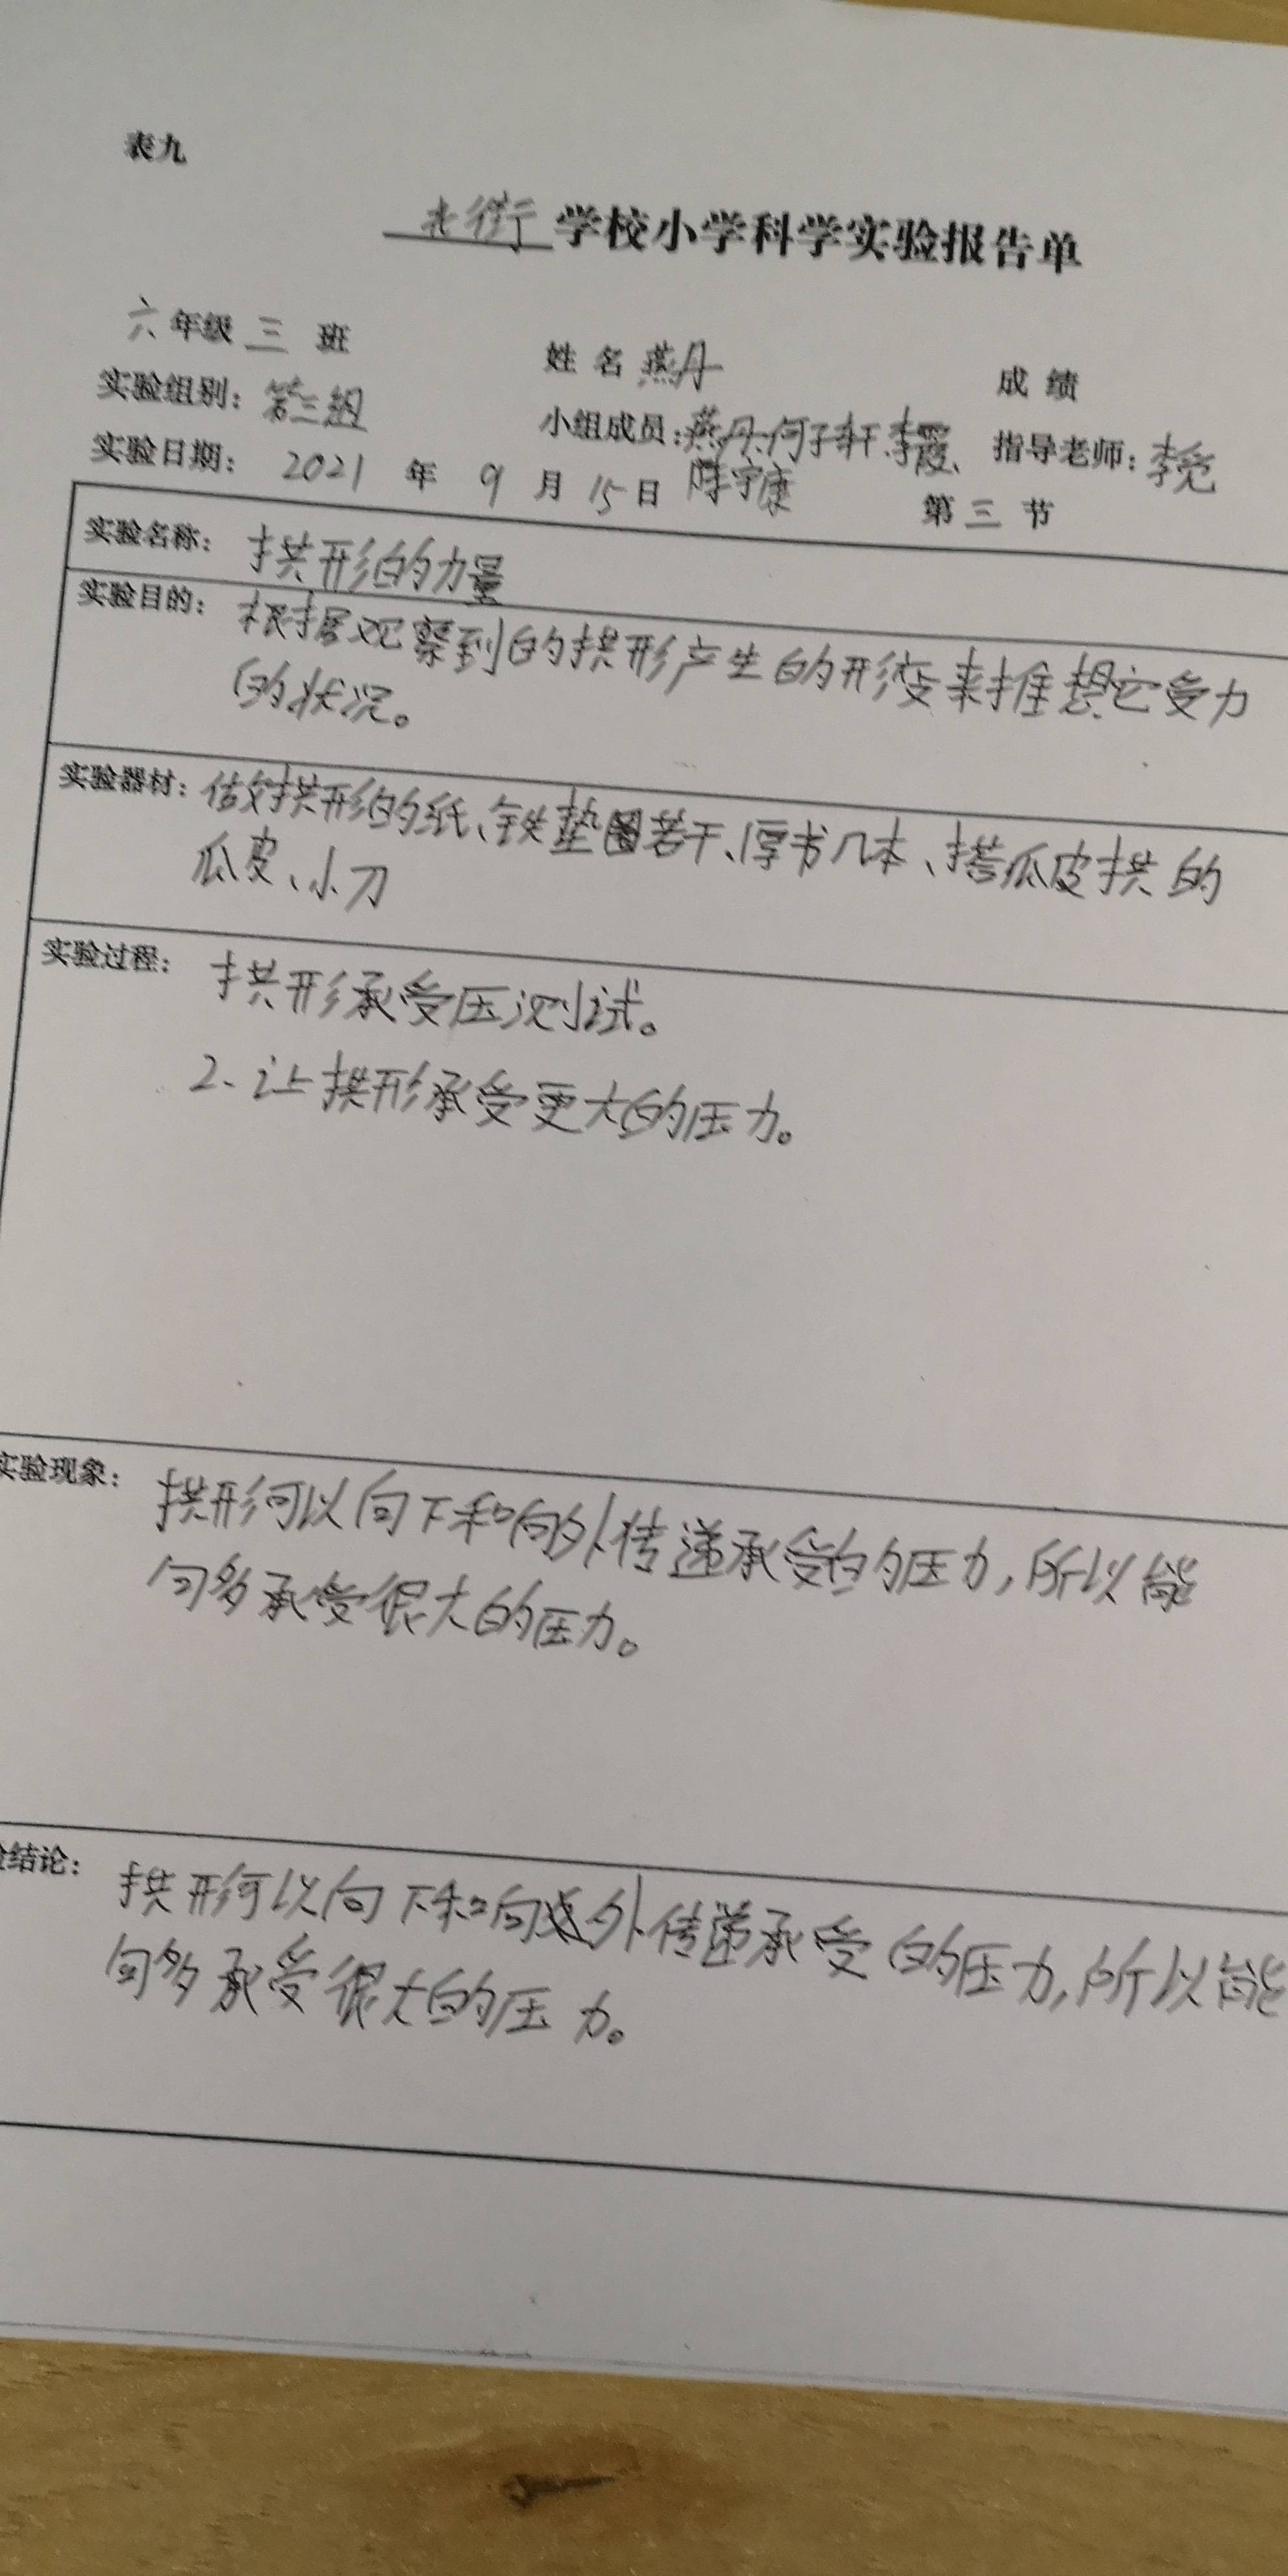 表九
北街学校小学科学实验报告单
六年级 三 班 姓 名 燕丹 成 绩
实验组别：第三组 小组成员：燕丹、何子轩、李霞、 指导老师：李
陈宇康
实验日期： 2021 年 9 月 15 日 第 三 节
实验名称： 拱形的力量
实验目的： 根据观察到的拱形产生的形变来推想它受力
的状况。
实验器材：做拱形的纸、铁垫圈若干、厚书几本、搭瓜皮拱的
瓜皮、小刀
实验过程： 拱形承受压测试。
2、让拱形承受更大的压力。
实验现象： 拱形可以向下和向外传递承受的压力，所以能
句多承受很大的压力。
验结论： 拱形可以向下和向外传递承受的压力，所以能
句多承受很大的压力。